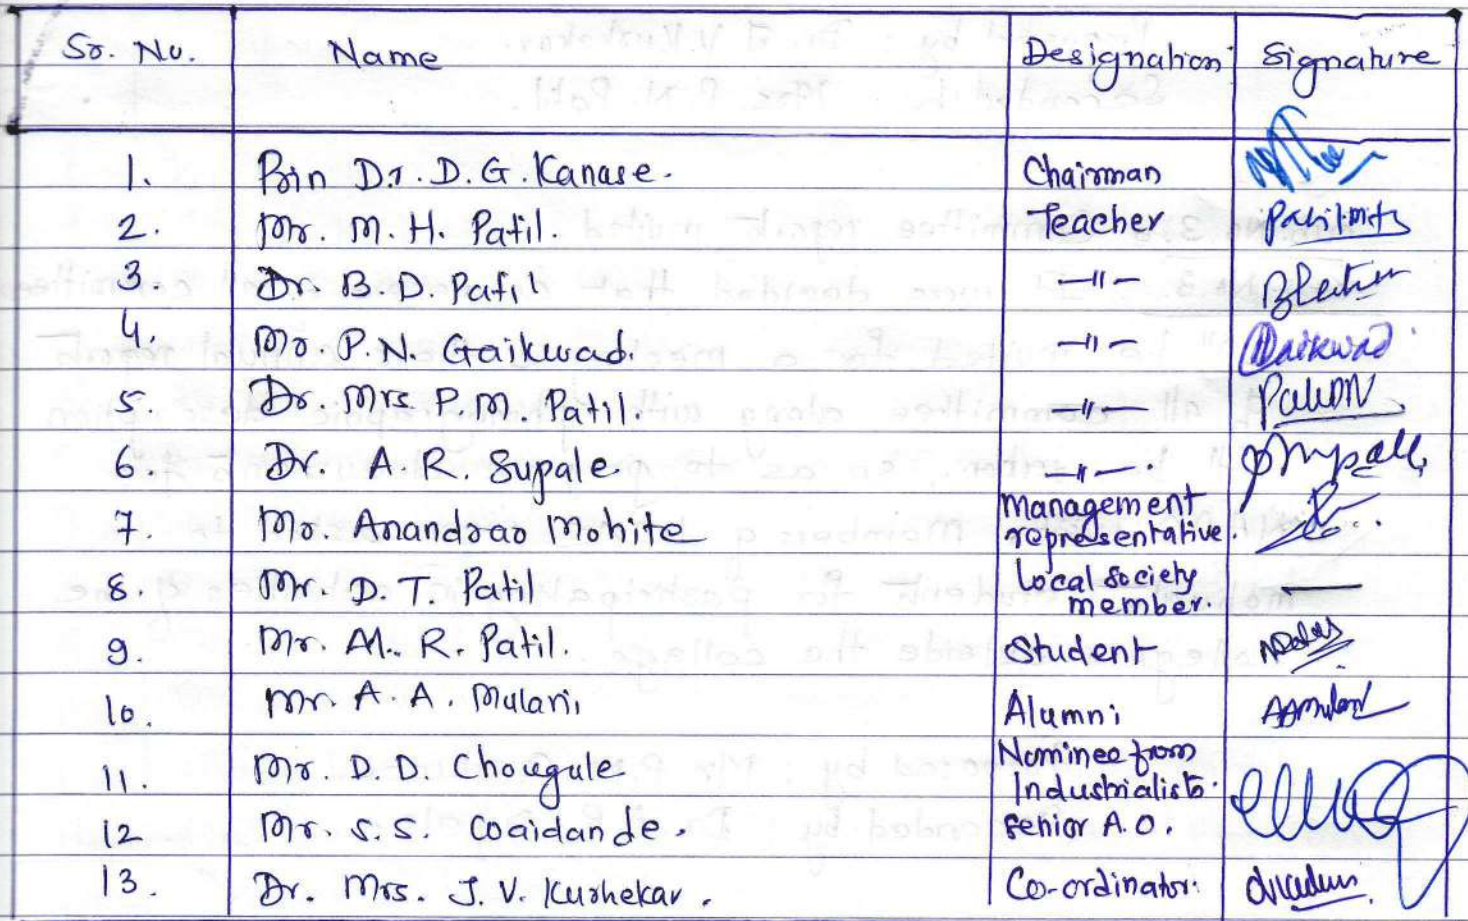 Sr. No. Name Designation Signature
1. Prin Dr. D. G. Kanase. Chairman
2. Mr. M. H. Patil. Teacher
3. Dr. B. D. Patil —"—
4. Mr P. N. Gaikwad. —"— Gaikwad
5. Dr. Mrs. P. M. Patil. —"—
6. Dr. A. R. Supale —"—.
7. Mr. Anandrao Mohite Management
representative.
8. Mr. D. T. Patil Local Society
member. —
9. Mr. M. R. Patil. Student
10. Mr. A. A. Mulani Alumni
11. Mr. D. D. Chougule Nominee from
Industrialists.
12 Mr. S. S. Senior A.O.
13. Dr. Mrs. J. V. Kurhekar. Co-ordinator.